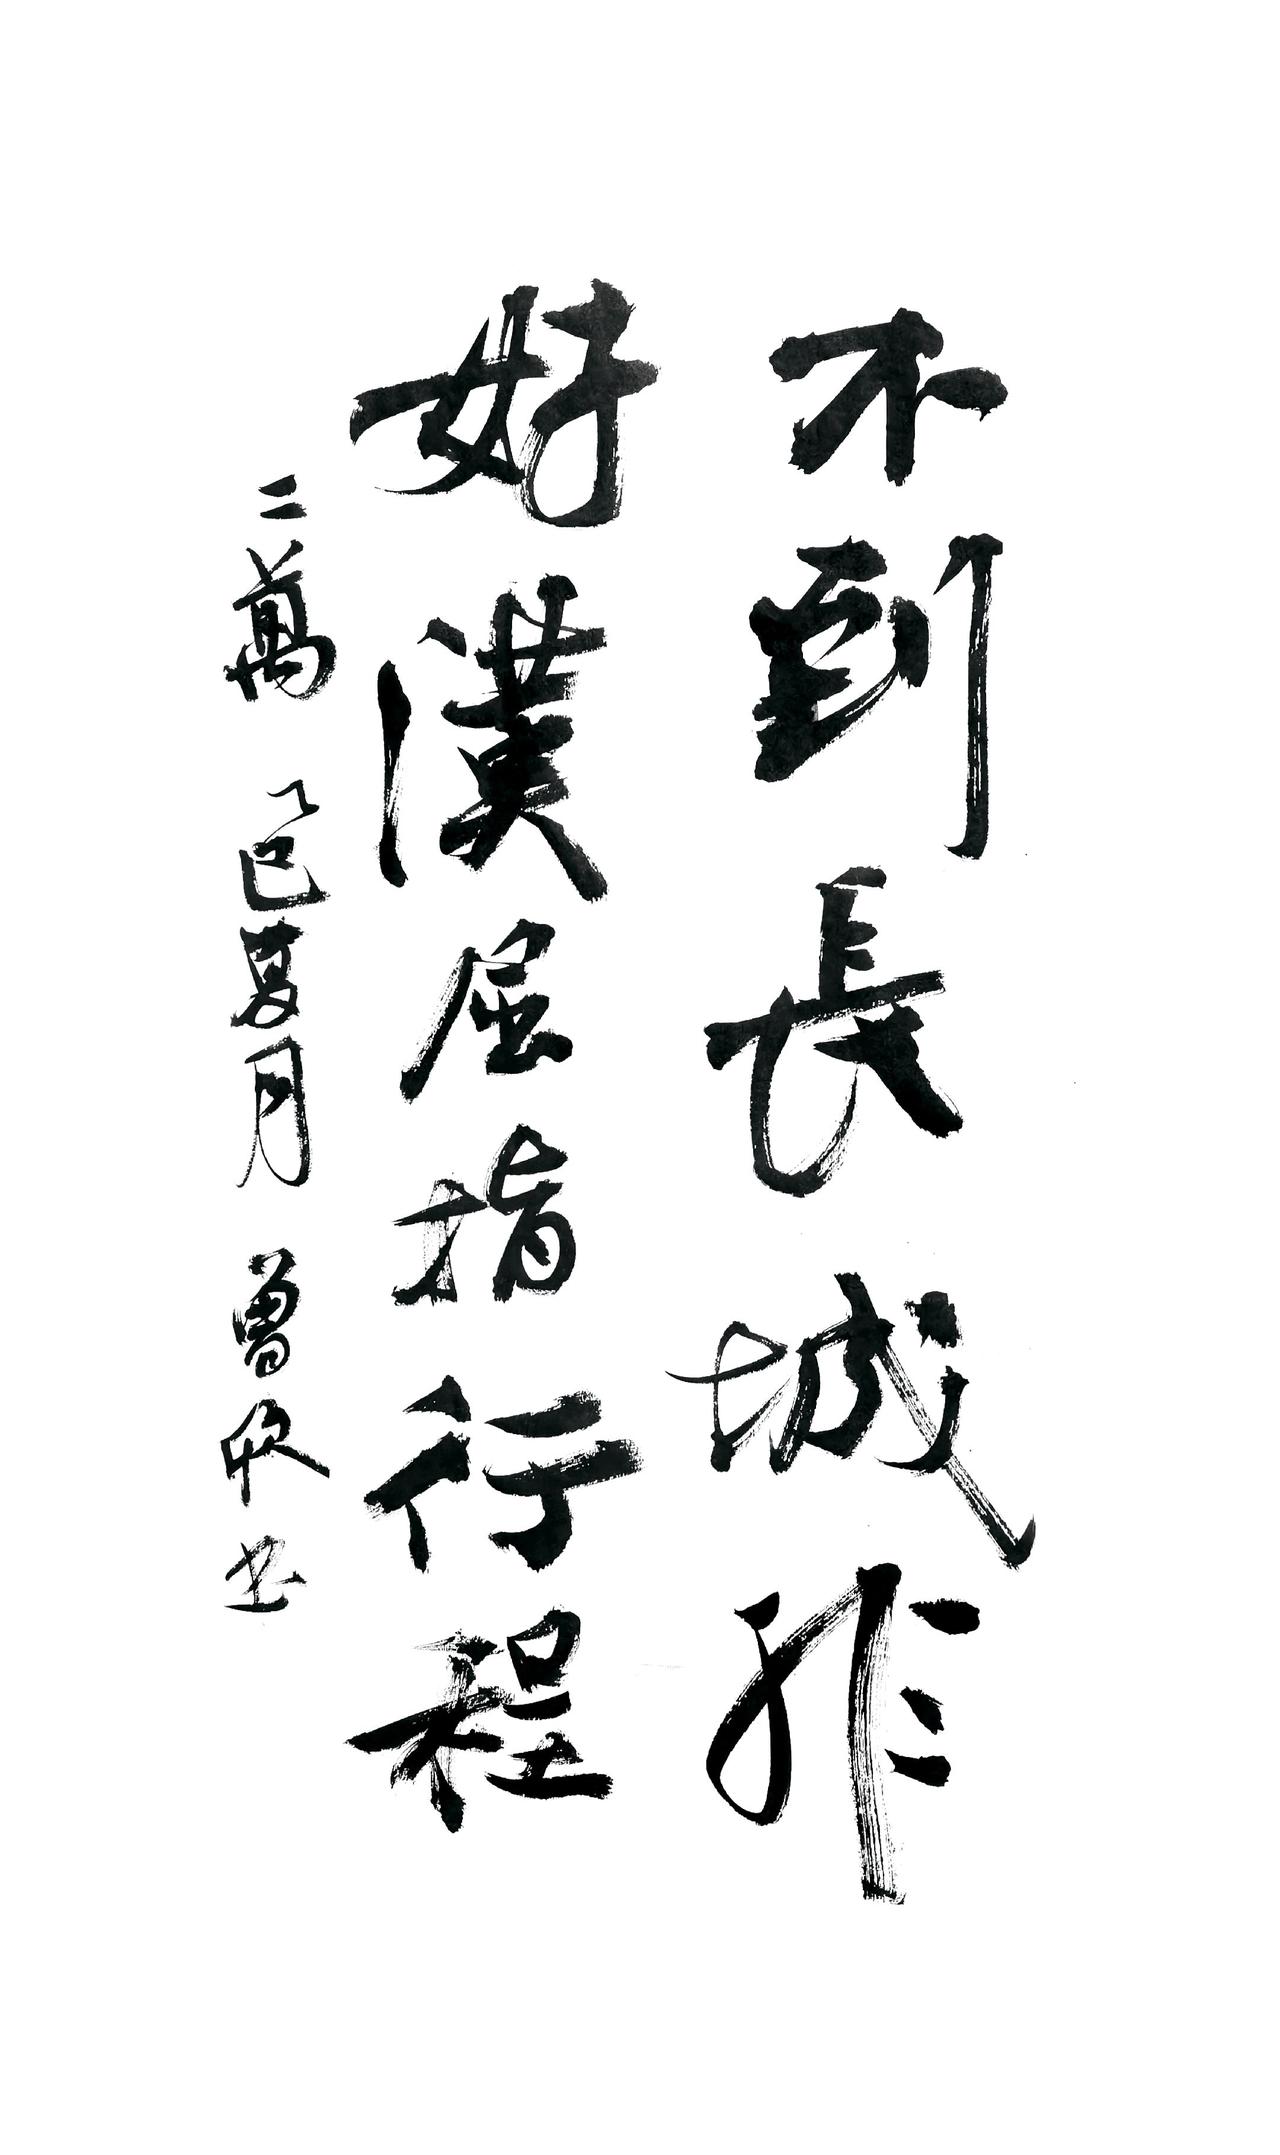 不到長城非
好漢屈指行程
二萬 乙巳夏月 曾欣书